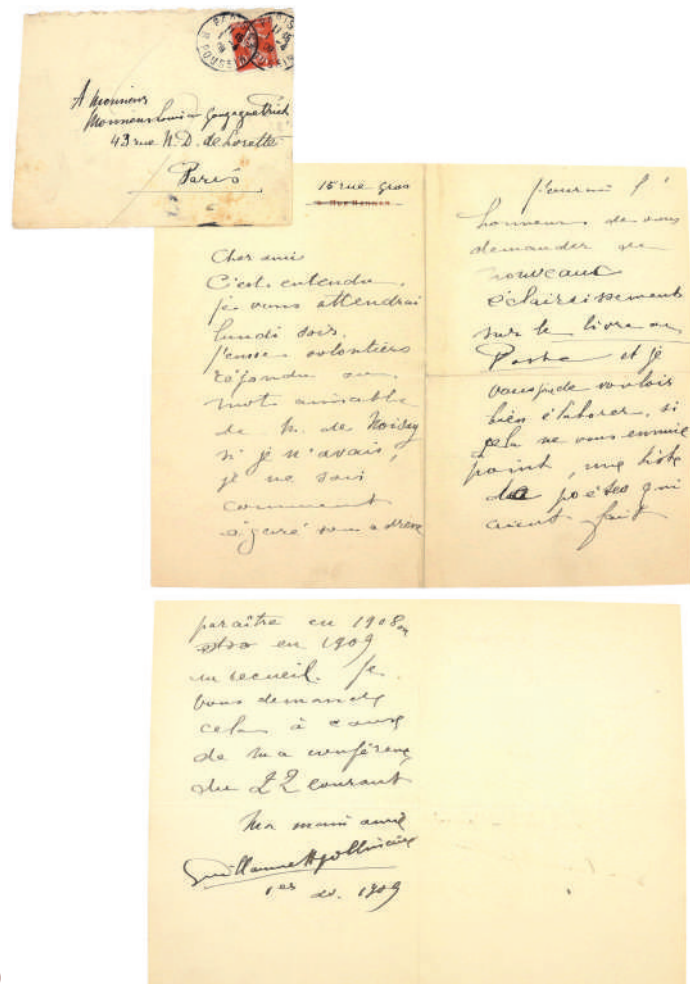 A Monsieur
Monsieur Louis de Gonzague Frick
43 rue N.D. de Lorette
Paris
15 rue Gros
Cher ami
C'est entendu,
je vous attendrai
lundi soir.
J'eusse volontiers
répondu au
mot aimable
de M. de Noisay
si je n'avais,
je ne sais
comment
égaré son adresse
J'aurai l'
honneur de vous
demander de
nouveaux
éclaircissements
sur le livre
et je
vous prie de vouloir
bien élaborer, si
cela ne vous ennuie
point, une liste
de poètes qui
aient fait
paraître en 1908 ou
en 1909
un recueil. Je
vous demande
cela à cause
de ma conférence
du 22 courant
Ma main amie
Guillaume Apollinaire
1er 1909